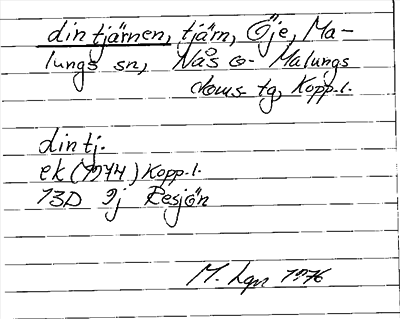 dintjärnen, tjärn, Öje, Ma-
lungs sn, Nås o- Malungs
doms. tg, Kopp. l.
dintj.
ek (1974) Kopp. l.
13D 9j Resjön
M. Lgn 1976